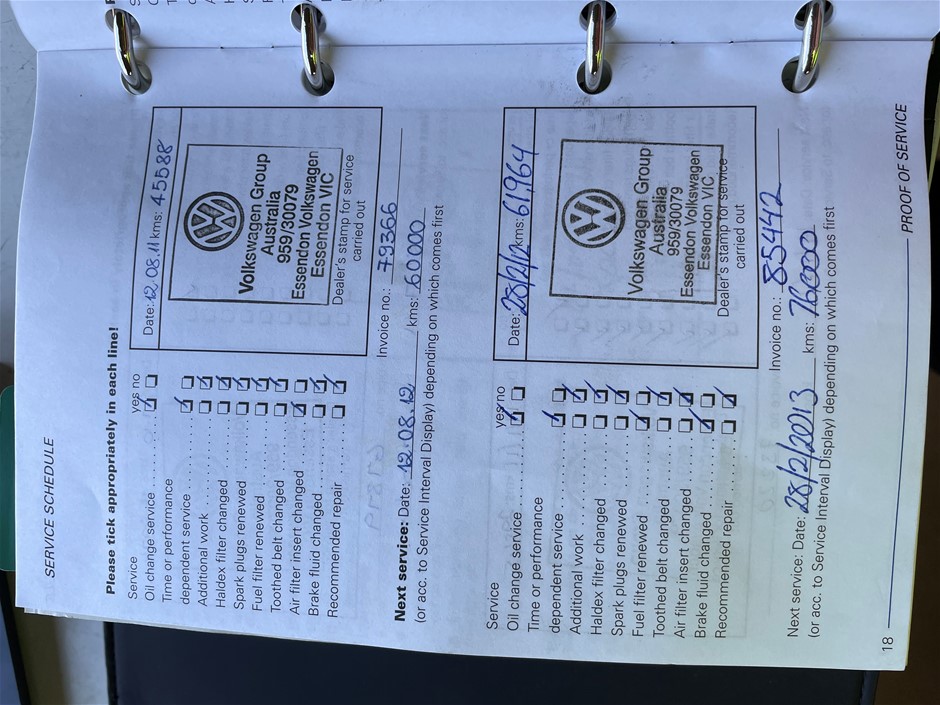 SERVICE SCHEDULE
Please tick appropriately in each line!
Service yes no
Oil change service
Time or performance
dependent service
Additional work
Haldex filter changed
Spark plugs renewed
Fuel filter renewed
Toothed belt changed
Air filter insert changed
Brake fluid changed
Recommended repair
Date: 12.08.11 kms: 45588
Volkswagen Group
Australia
959/30079
Essendon Volkswagen
Essendon VIC
Dealer's stamp for service
carried out
Invoice no.: 79366
Next service: Date: 12.08.12 kms: 60000
(or acc. to Service Interval Display) depending on which comes first
Service yes no
Oil change service
Time or performance
dependent service
Additional work
Haldex filter changed
Spark plugs renewed
Fuel filter renewed
Toothed belt changed
Air filter insert changed
Brake fluid changed
Recommended repair
Date: 28/2/12 kms: 61,964
Volkswagen Group
Australia
959/30079
Essendon Volkswagen
Essendon VIC
Dealer's stamp for service
carried out
Invoice no.: 85442
Next service: Date: 28/2/2013 kms: 76000
(or acc. to Service Interval Display) depending on which comes first
18 PROOF OF SERVICE